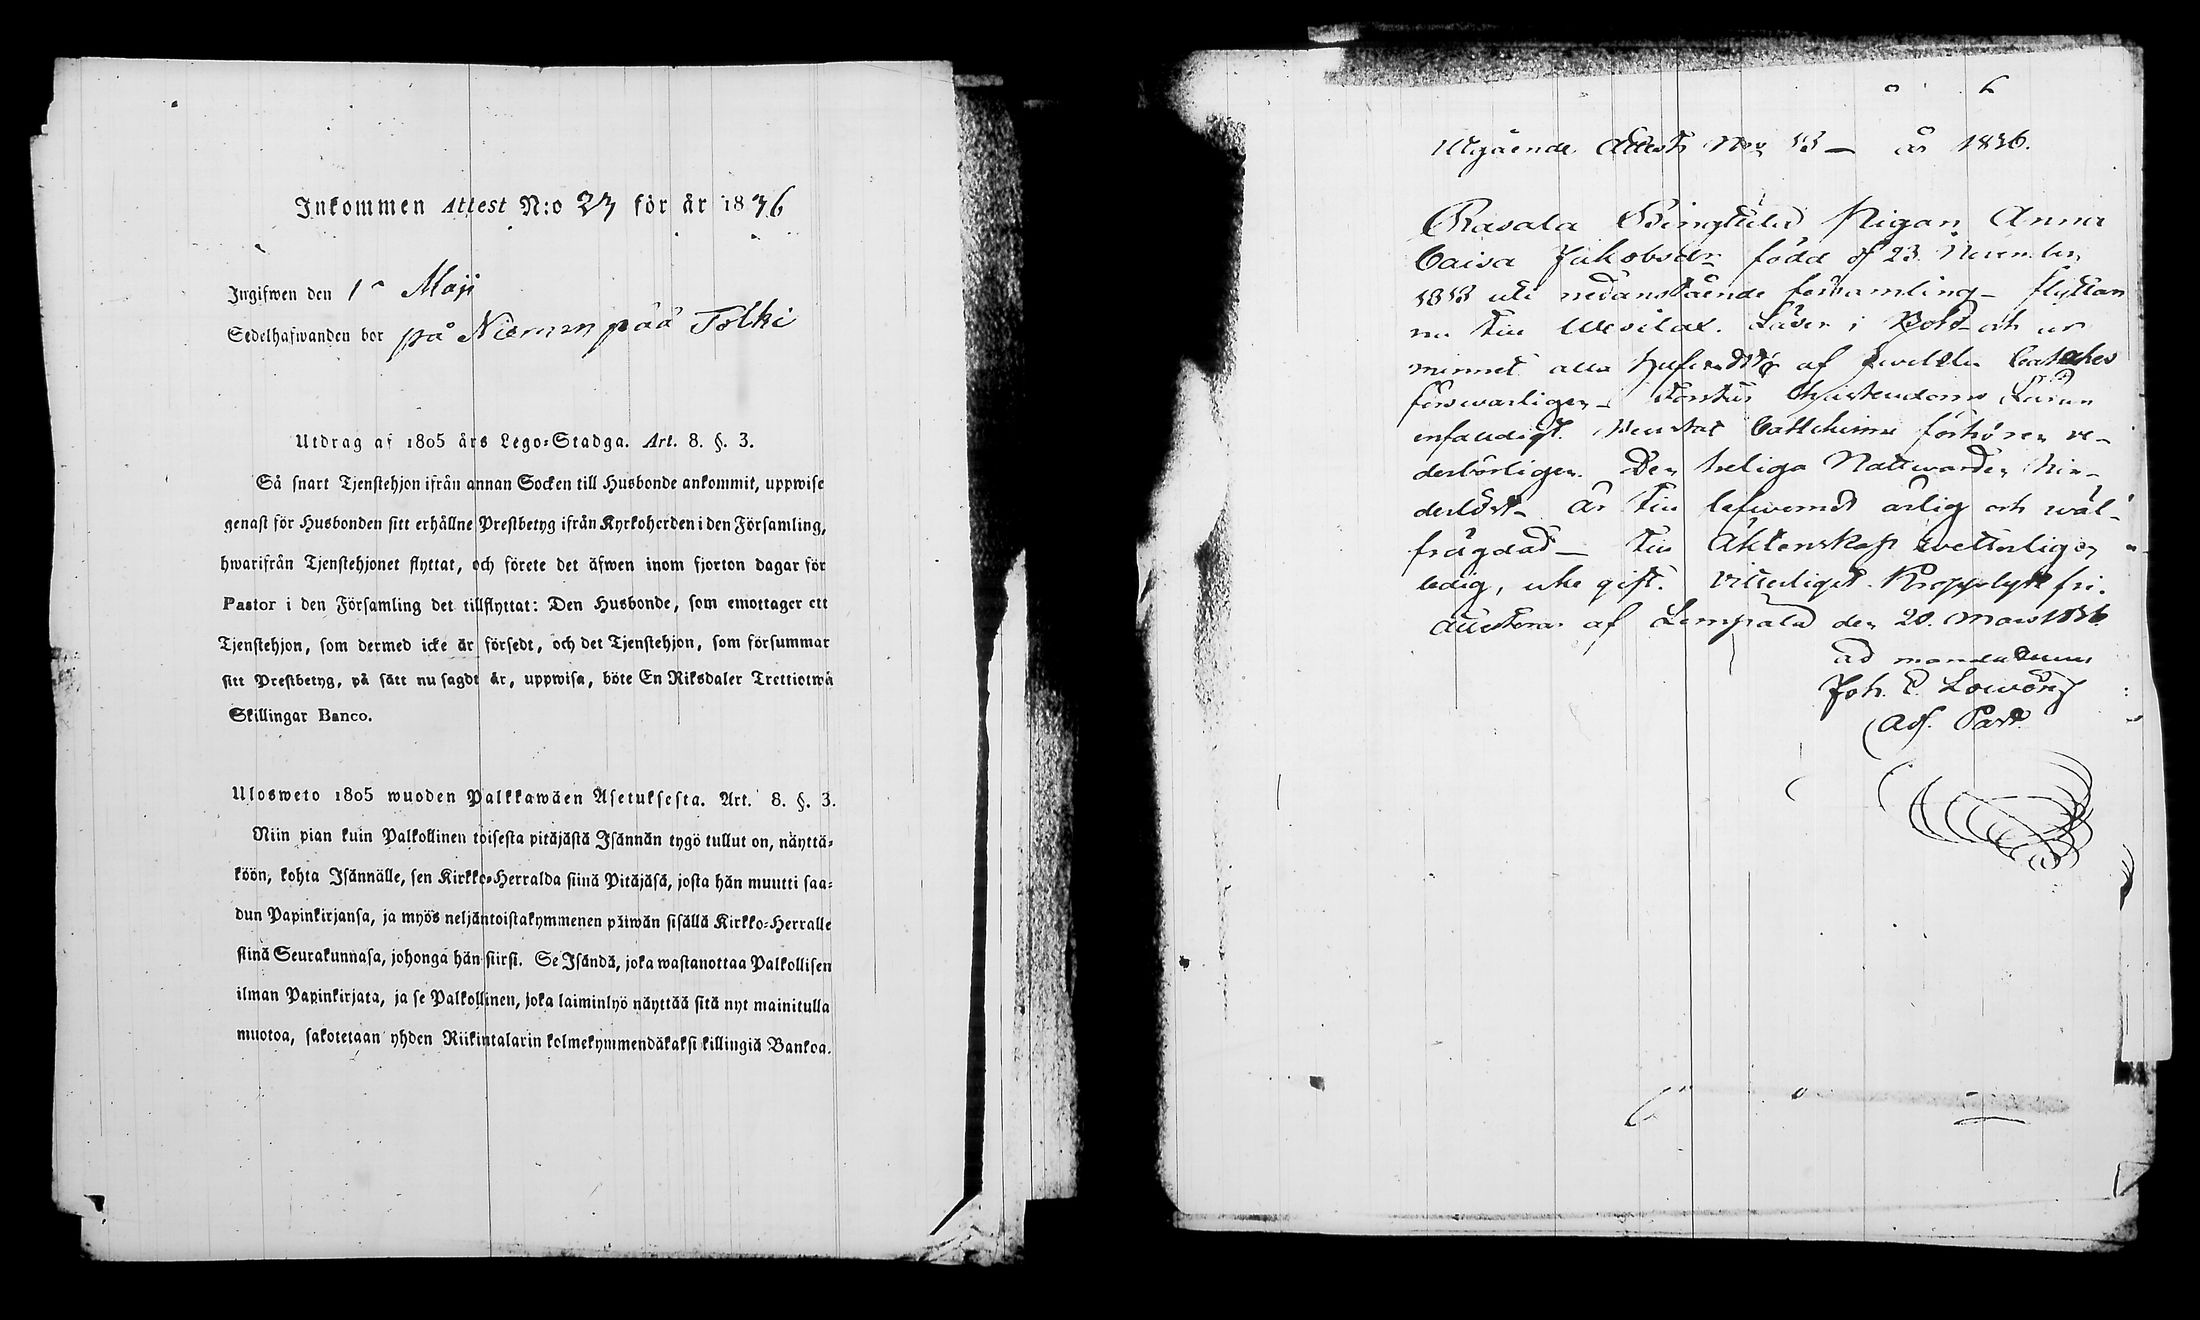 Inkommen Attest N:o 23 för år 1836
Ingifwen den 1 Maji
Sedelhafwanden bor på Niemenpää Tolki
Utdrag af 1805 års Lego-Stadga. Art. 8. §. 3.
Så snart Tjenstehjon ifrån annan Socken till Husbonde ankommit, uppwise
genast för Husbonden sitt erhållne Prestbetyg ifrån Kyrkoherden i den Församling,
hwarifrån Tjenstehjonet flyttat, och förete det äfwen inom fjorton dagar för
Pastor i den Församling det tillflyttat: Den Husbonde, som emottager ett
Tjenstehjon, som dermed icke är försedt, och det Tjenstehjon, som försummar
sitt Prestbetyg, på sätt nu sagdt är, uppwisa, böte En Riksdaler Trettiotwå
Skillingar Banco.
Ulosweto 1805 wuoden Palkkawäen Asetuksesta. Art. 8. §. 3.
Niin pian kuin Palkollinen toisesta pitäjästä Isännän tygö tullut on, näyttä-
köön, kohta Isännälle, sen Kirkko-Herralda siinä Pitäjäsä, josta hän muutti saa-
dun Papinkirjansa, ja myös neljäntoistakymmenen päiwän sisällä Kirkko-Herralle
siinä Seurakunnasa, johonga hän siirsi. Se Isändä, joka wastanottaa Palkollisen
ilman Papinkirjata, ja se Palkollinen, joka laiminlyö näyttää sitä nyt mainitulla
muotoa, sakotetaan yhden Riikintalarin kolmekymmendäkaksi killingiä Bankoa.
6
Utgående Attest N:o 53 år 1836.
Pigan Anna
Caisa Jakobsdr född d 23 November
uti nedanstående församling flyttar
nu till Wesilax. Läser i Bok och ur
minnet alla af Cateches
försvarligen. Christendoms Läran
enfaldigt. Catechismi förhören we-
derbörligen. Den heliga Nattwarden hin-
derlöst. Är till lefwernet ärlig och wäl-
frägdad till Äktenskap wetterligen
ledig, icke gift. Kropslyte fri.
af Lempälä den 20 Mars 1836
ad mandatum
Joh. E.
Adj. Past.